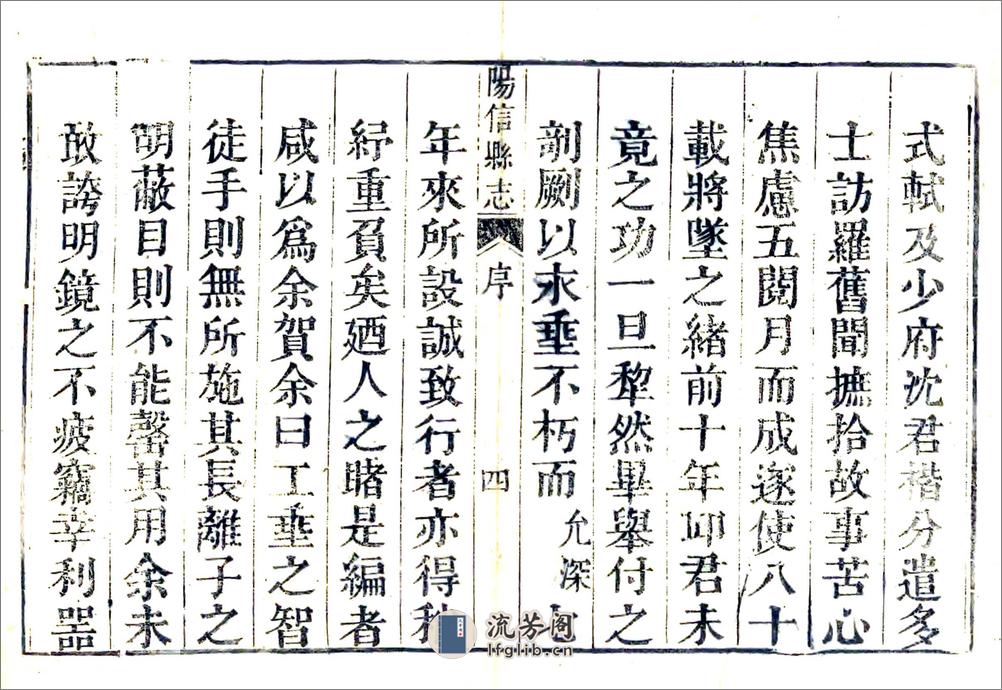 式軾及少府沈君楷分遣多
士訪羅舊聞摭拾故事苦心
焦慮五閱月而成遂使八十
載將墜之緒前十年邱君未
竟之功一旦犁然畢舉付之
剞劂以永垂不朽而允深
陽信縣志
序
四
年來所設誠致行者亦得
紓重負矣廼人之睹是編者
咸以爲余賀余曰工垂之智
徒手則無所施其長離子之
明蔽目則不能罄其用余未
敢誇明鏡之不疲竊幸利器
流芳阁
lfglib.cn